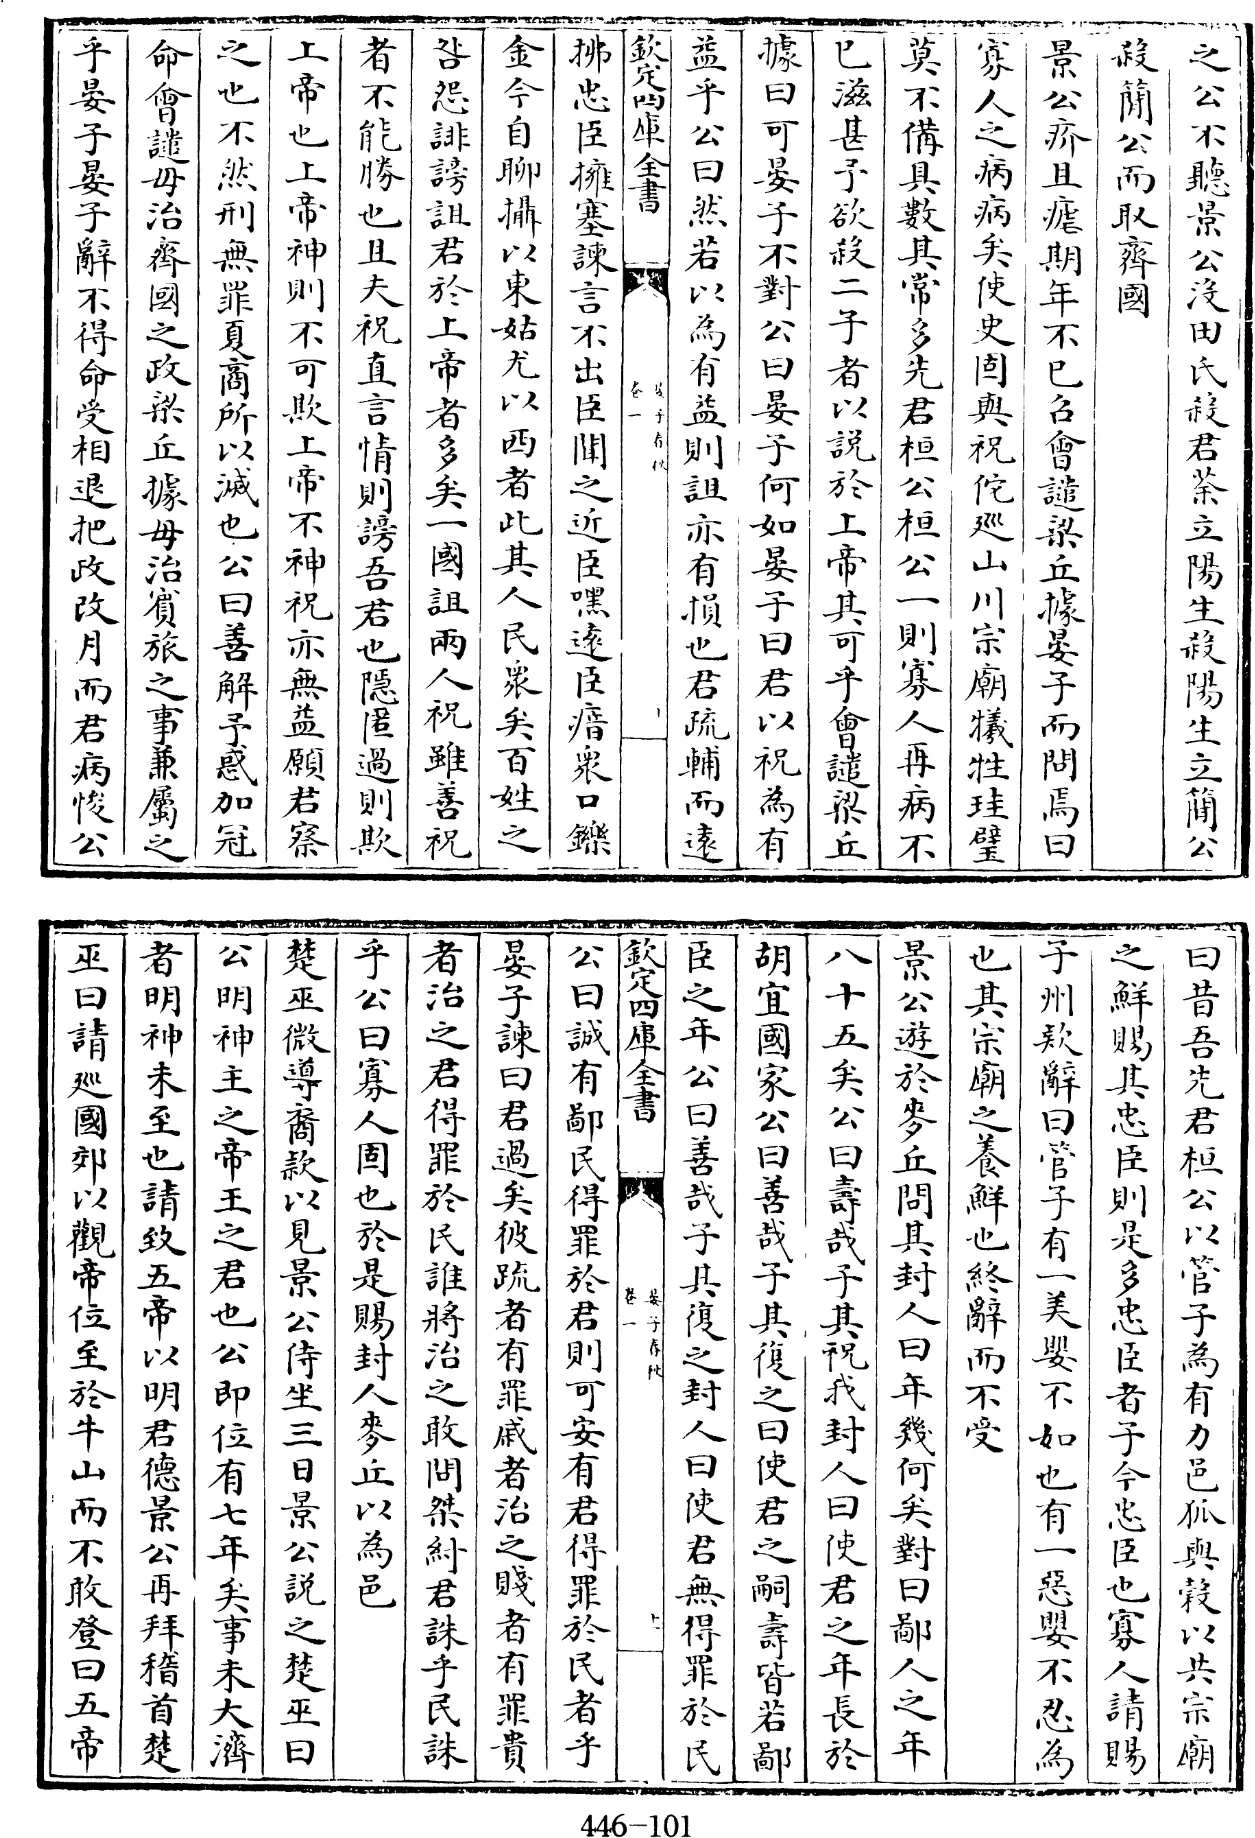 之公不聽景公沒田氏殺君荼立陽生殺陽生立簡公
殺簡公而取齊國
景公疥且瘧期年不已召會譴梁丘據晏子而問焉曰
寡人之病病矣使史固與祝佗廵山川宗廟犧牲珪璧
莫不備具數其常多先君桓公桓公一則寡人再病不
已滋甚予欲殺二子者以説於上帝其可乎會譴梁丘
據曰可晏子不對公曰晏子何如晏子曰君以祝為有
益乎公曰然若以為有益則詛亦有損也君疏輔而逺
欽定四庫全書
晏子春秋
卷一
十
拂忠臣擁塞諫言不出臣聞之近臣嘿逺臣瘖衆口鑠
金今自聊攝以東姑尤以西者此其人民衆矣百姓之
咎怨誹謗詛君於上帝者多矣一國詛兩人祝雖善祝
者不能勝也且夫祝直言情則謗吾君也隠匿過則欺
上帝也上帝神則不可欺上帝不神祝亦無益願君察
之也不然刑無罪夏商所以滅也公曰善解予惑加冠
命會譴毋治齊國之政梁丘據毋治賓旅之事兼屬之
乎晏子晏子辭不得命受相退把政改月而君病悛公
曰昔吾先君桓公以管子為有力邑狐與穀以共宗廟
之鮮賜其忠臣則是多忠臣者子今忠臣也寡人請賜
子州欵辭曰管子有一美嬰不如也有一惡嬰不忍為
也其宗廟之養鮮也終辭而不受
景公遊於麥丘問其封人曰年幾何矣對曰鄙人之年
八十五矣公曰壽哉子其祝我封人曰使君之年長於
胡宜國家公曰善哉子其復之曰使君之嗣壽皆若鄙
臣之年公曰善哉子其復之封人曰使君無得罪於民
欽定四庫全書
晏子春秋
卷一
十一
公曰誠有鄙民得罪於君則可安有君得罪於民者乎
晏子諫曰君過矣彼疏者有罪戚者治之賤者有罪貴
者治之君得罪於民誰將治之敢問桀紂君誅乎民誅
乎公曰寡人固也於是賜封人麥丘以為邑
楚巫微導裔款以見景公侍坐三日景公説之楚巫曰
公明神主之帝王之君也公即位有七年矣事未大濟
者明神未至也請致五帝以明君德景公再拜稽首楚
巫曰請廵國郊以觀帝位至於牛山而不敢登曰五帝
446-101